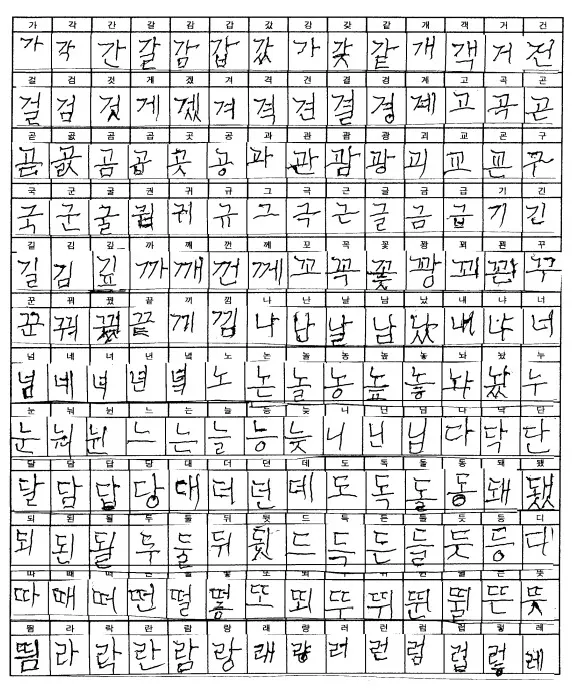 가 각 간 갈 감 갑 갔 강 갖 같 개 객 거 건
가 각 간 갈 감 갑 갔 가 갖 같 개 객 거 전
걸 검 것 게 겠 겨 격 견 결 경 계 고 곡 곤
걸 검 것 게 겠 겨 격 견 결 경 계 고 곡 곤
곧 곰 곱 곳 공 과 관 괌 광 괴 교 구
곧 곰 곱 곳 공 과 관 괌 광 괴 교 구
국 군 굴 권 귀 규 그 극 근 글 금 급 기 긴
국 군 굴 귀 규 그 극 근 글 금 급 기 긴
길 김 깊 까 깨 껀 께 꼬 꼭 꽃 꽝 꾀 꾄 꾸
길 김 깊 까 깨 껀 께 꼬 꼭 꽃 꽝 꾀 꾄 꾸
꾼 꿔 꿨 끝 끼 낌 나 난 날 남 났 내 냐 너
꾼 꿔 꿨 끝 끼 낌 나 난 날 남 났 내 냐 너
넘 네 녀 년 녘 노 논 놀 농 높 놓 놔 놨 누
넘 네 녀 년 녘 노 논 놀 농 높 놓 놔 놨 누
눈 눠 뉜 느 는 늘 능 늦 니 닌 님 다 닥 단
눈 눠 뉜 느 는 늘 능 늦 니 닌 닙 다 닥 단
달 담 답 당 대 더 던 데 도 독 돌 동 돼 됐
달 담 답 당 대 더 던 데 도 독 돌 동 돼 됐
되 된 될 두 둘 뒤 뒀 드 득 든 들 듯 등 디
되 된 될 두 둘 뒤 뒀 드 득 든 들 듯 등 디
따 때 떠 또 뙤 뛴 뜬 뜻
따 때 떠 떤 떨 똥 또 뙤 뚜 뛰 뛴 뚤 뜬 뜻
띔 라 락 란 람 랑 래 량 려 런 럼 럽 렇 레
띔 라 락 란 람 랑 래 량 려 런 럼 럽 렇 레